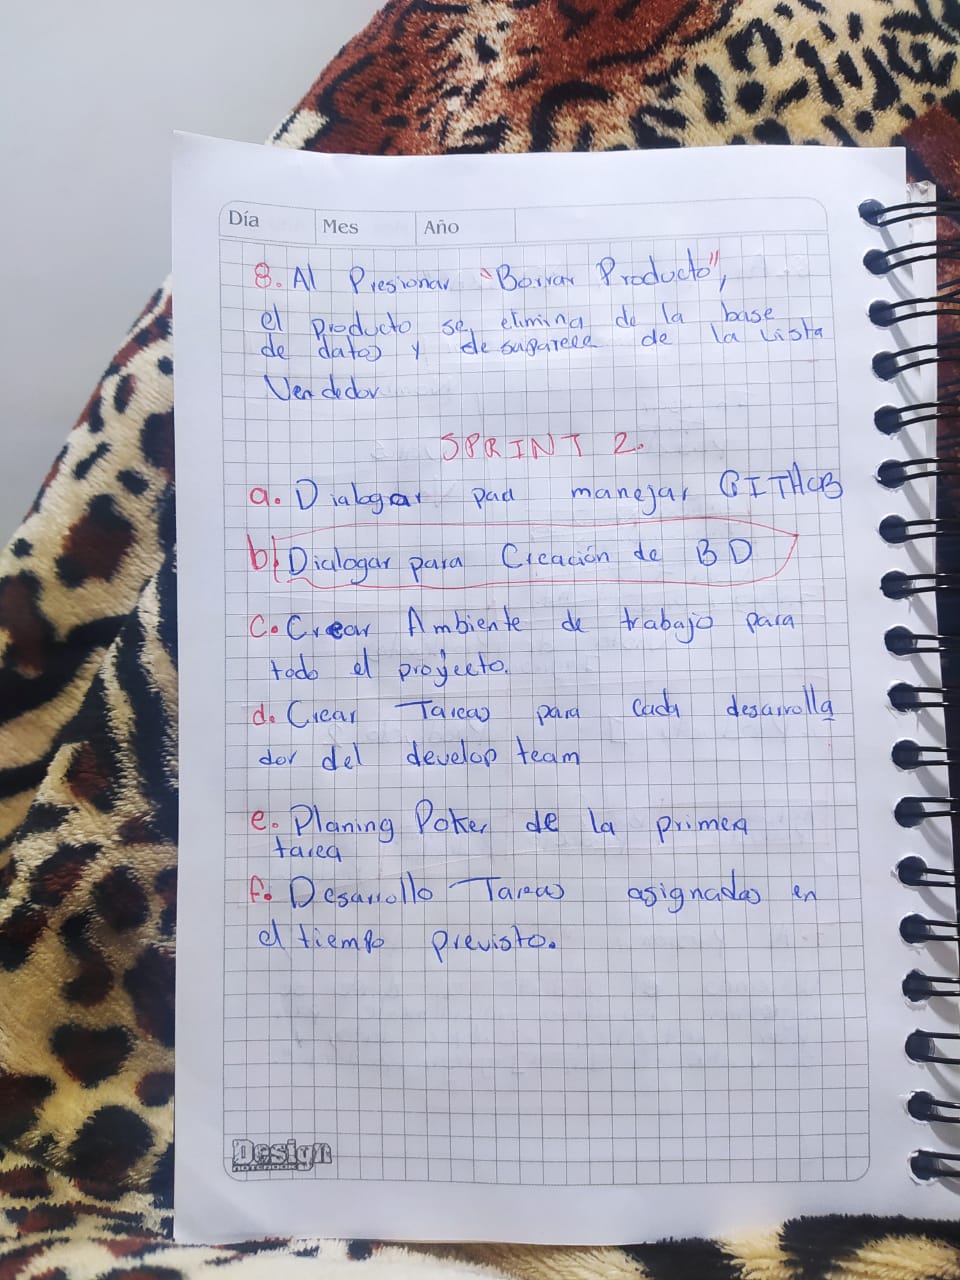 Día Mes Año
8. Al Presionar "Borrar Producto",
el producto se elimina de la base
de datos y desaparece de la Lista
Vendedor
SPRINT 2.
a. Dialogar paa manejar GITHUB
b| Dialogar para Creación de BD
c. Crear Ambiente de trabajo para
todo el proyecto.
d. Crear Tareas para cada desarrolla
dor del develop team
e. Planing Poker de la primera
tarea
f. Desarrollo Tareas asignadas en
el tiempo previsto.
Design
NOTEBOOK